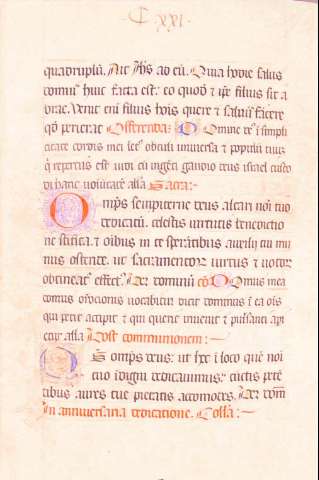 C xxi
quadruplū. Ait ihs ad eū. Quia hodie salus
domui huic facta est: eo quod & ipse filius sit a
brae. Venit eni filius hois quere & salvū facere
qd perierat Offerenda: Domine ds i simpli
citate cordis mei let obtuli universa & populū tuū
q repertus est vidi cū ingēti gaudio deus israel custo
di hanc volūtatē alla Sacra:
Omps sempiterne deus altari noi tuo
dedicatū. celestis virtutis benedictio
ne scifica. & oibus in te speratibus auxilij tui mu
nus ostende. ut sacramentor virtus & votor
obtineat effect. Per dominū cō Domus mea
domus orationis vocabitur dicit dominus i ea ois
qui petit accipit & qui querit invenit & pulsanti api
etur alla Post communionem:
Ds omps deus: ut hec i loco quē noi
tuo idigni dedicavimus: cuctis petē
tibus aures tue pietatis accomodes. Per dom
In anniversaria dedicatione. Colla: